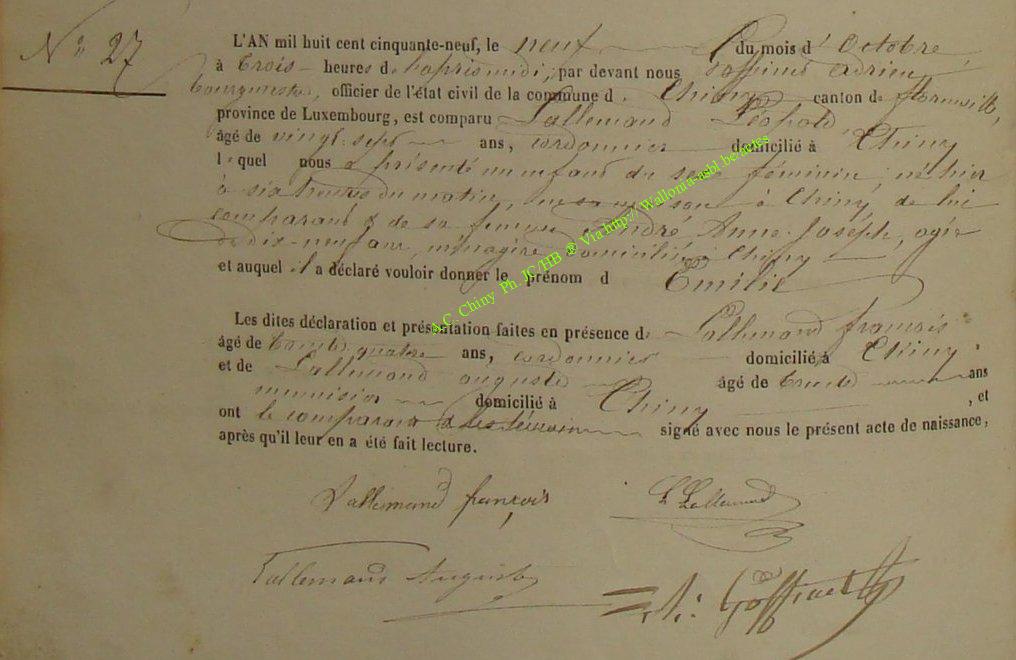 N° 27
L'AN mil huit cent cinquante-neuf, le neuf du mois d'Octobre
à trois heures de l'apris midi, par devant nous Adrien
bourgmestre, officier de l'état civil de la commune d. Chiny canton de florenville,
province de Luxembourg, est comparu Lallemand Léopold,
âgé de vingt-sept ans, cordonnier domicilié à Chiny
lequel nous a présenté un enfant du sexe féminin, né hier
à six heures du matin, en sa maison à Chiny, de lui
comparant & de sa femme André Anne-Joséph, agée
de dix-neuf ans, ménagère domiciliée Chiny
et auquel il a déclaré vouloir donner le prénom d Emilie
Les dites déclaration et présentation faites en présence de Lallemand françois
âgé de trente quatre ans, cordonnier domicilié à Chiny
et de Lallemand auguste âgé de trente ans
menuisier domicilié à Chiny, et
ont le comparant & les témoin signé avec nous le présent acte de naissance,
après qu'il leur en a été fait lecture.
Lallemand françois L Lallemand
Lallemand Auguste
A.C. Chiny Ph. JC/HB ® Via http:// Wallonia-asbl.be/actes